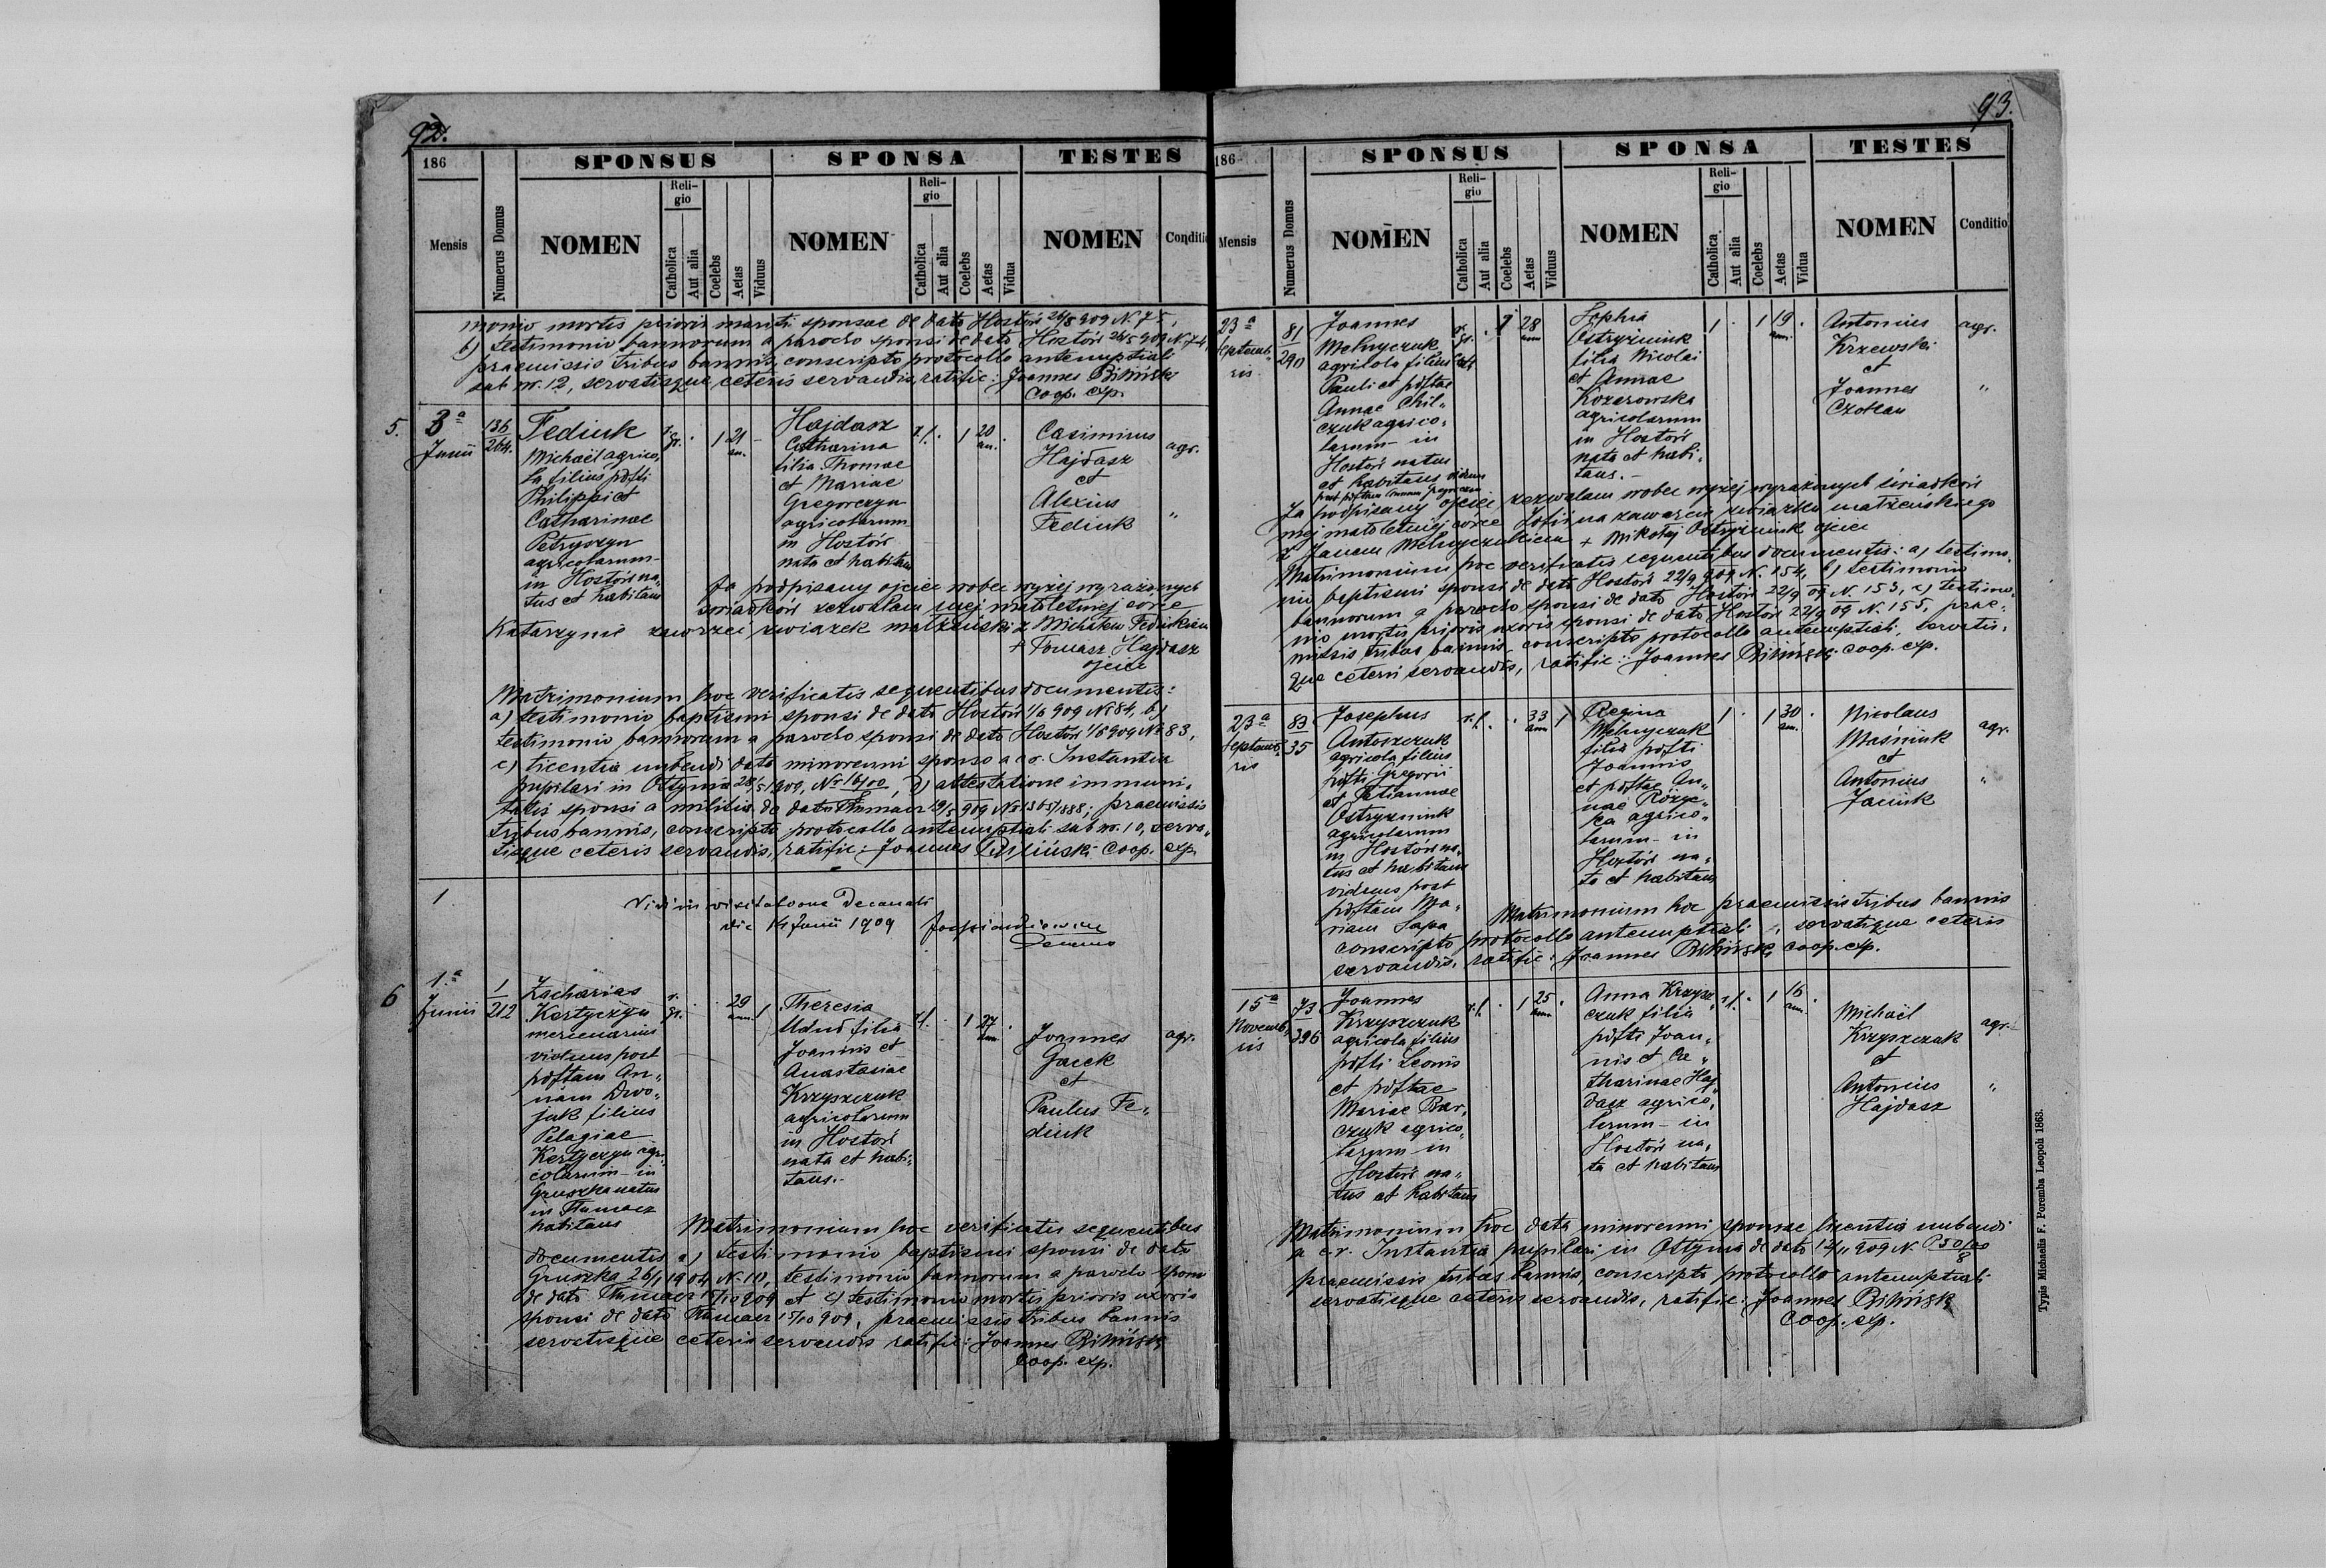 92.
186
SPONSUS
SPONSA
TESTES
Mensis
Numerus Domus
NOMEN
Religio
Catholica
Aut alia
Coelebs
Aetas
Viduus
NOMEN
Religio
Catholica
Aut alia
Coelebs
Aetas
Vidua
NOMEN
Conditio
monio mortis prioris mariti sponsae de dato Hostów 26/5 909 N. 75,
b) testimonio bannorum a parocho sponsi de dato Hostów 26/5 909 N. 74
praemissis tribus bannis, conscripto protocollo antenuptiali
sub nr. 12, servatisque ceteris servandis, ratific: Joannes Biliński
Coop. exp.
5.
3a
Junii
136
264.
Fediuk
Michael agrico-
la filius pdfti
Philippi et
Catharinae
Petryszyn
agricolarum
in Hostów na-
tus et habitans
r. gr.
1
21
an.
Hajdasz
Catharina
filia Thomae
et Mariae
Gregorczyn
agricolarum
in Hostów
nata et habitans
r. l.
1
20
an.
Casimirus
Hajdasz
et
Alexius
Fediuk
agr.
"
Ja podpisany ojciec wobec wyżej wyrażonych
świadków zezwalam mej małoletniej córce
Katarzynie zawrzeć związek małżeński z Michałem Fediukiem
+ Tomasz Hajdasz
ojciec
Matrimonium hoc verificatis sequentibus documentis:
a) testimonio baptismi sponsi de dato Hostów 1/6 909 No 84, b)
testimonio bannorum a parocho sponsi de dato Hostów 1/6 909 No 83,
c) licentia nubendi dato minorenni sponso a c.r. Instantia
pupilari in Ottynia 28/5 1909, No 16/00, d) attestatione immuni-
tatis sponsi a militia de dato Tłumacz 19/5 909 No 1305/888; praemissis
tribus bannis, conscripto protocollo antenuptiali sub nr. 10, serva-
tisque ceteris servandis, ratific: Joannes Biliński Coop. exp.
1
Vidi in visitatione Decanali
die 14 Junii 1909
6
1.a
Junii
1
212
Zacharias
Kertyczyn
mercenarius
viduus post
pdftam An-
nam Dwo-
jak filius
Pelagiae
Kertyczyn agri-
colarum in
Gruszka natus
in Tłumacz
habitans
r. gr.
29
ann.
1
Theresia
Udud filia
Joannis et
Anastasiae
Krzyszczuk
agricolarum
in Hostów
nata et habi-
tans.-
r. l.
1
27
ann.
Joannes
Gacek
et
Paulus Fe-
diuk
agr.
Matrimonium hoc verificatis sequentibus
documentis a) testimonio baptismi sponsi de dato
Gruszka 26/1 1904 N. 10, testimonio bannorum a parocho sponsi
de dato Tłumacz 15/10 909 et c) testimonio mortis prioris uxoris
sponsi de dato Tłumacz 15/10 909, praemissis tribus bannis
servatisque ceteris servandis ratific: Joannes Biliński
Coop. exp.
93.
186
SPONSUS
SPONSA
TESTES
Mensis
Numerus Domus
NOMEN
Religio
Catholica
Aut alia
Coelebs
Aetas
Viduus
NOMEN
Religio
Catholica
Aut alia
Coelebs
Aetas
Vidua
NOMEN
Conditio
23a
Septemb-
ris
81
290
Joannes
Melnyczuk
agricola filius
Pauli et pdftae
Annae Chil-
czuk agrico-
larum in
Hostów natus
et habitans viduus
r. gr. cath.
28
ann
Sophia
Ostryzniuk
filia Nicolai
et Annae
Kozarowska
agricolarum
in Hostów
nata et habi-
tans.-
1
1
19
ann.
Antonius
Krzewski
et
Joannes
Czotan
agr.
"
Ja podpisany ojciec zezwalam wobec wyżej wyrażonych świadków
mej małoletniej córce Zofii na zawarcie związku małżeńskiego
z Janem Melnyczukiem + Mikołaj Ostryzniuk ojciec
Matrimonium hoc verificatis sequentibus documentis: a) testimo-
nio baptismi sponsi de dato Hostów 22/9 909 N. 154, b) testimonio
bannorum a parocho sponsi de dato Hostów 22/9 09 N. 153, c) testimo-
nio mortis prioris uxoris sponsi de dato Hostów 22/9 09 N. 155, prae-
missis tribus bannis conscripto protocollo antenuptiali, servatis-
que ceteris servandis, ratific: Joannes Biliński coop. exp.
23a
Septemb-
ris
83
35
Josephus
Antoszczuk
agricola filius
pdfti Gregorii
et Tatiannae
Ostryzniuk
agricolarum
in Hostów na-
tus et habitans
viduus post
pdftam Ma-
riam Sapa
r. l.
33
ann
1
Regina
Melnyczuk
filia pdfti
Joannis
et pdftae An-
nae Rózyc-
ka agrico-
larum in
Hostów na-
ta et habitans
1
1
30
an.
Nicolaus
Maśniuk
et
Antonius
Jaciuk
agr.
"
Matrimonium hoc praemissis tribus bannis
conscripto protocollo antenuptiali, servatisque ceteris
servandis, ratific: Joannes Biliński coop. exp.
15a
Novemb-
ris
73
396
Joannes
Krzyszczuk
agricola filius
pdfti Leonis
et pdftae
Mariae Bar-
czuk agrico-
larum in
Hostów na-
tus et habitans
r. l.
1
25
ann
Anna Krzysz-
czuk filia
pdfti Joan-
nis et Ca-
tharinae Haj-
dasz agrico-
larum in
Hostów na-
ta et habitans
r. l.
1
16
ann.
Michaël
Krzyszczuk
et
Antonius
Hajdasz
agr.
"
Matrimonium hoc data minorenni sponsae licentia nubendi
a c.r. Instantia pupilari in Ottynia de dato 12/11 909 N. P 50/00 8
praemissis tribus bannis, conscripto protocollo antenuptiali
servatisque ceteris servandis, ratific: Joannes Biliński
Coop. exp.
Typis Michaelis F. Poremba Leopoli 1863.